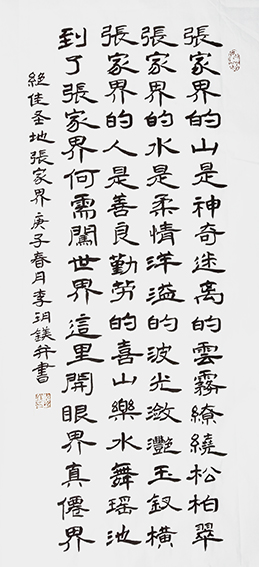 張家界的山是神奇迷离的雲霧繚繞松柏翠
張家界的水是柔情洋溢的波光潋灔玉釵橫
張家界的人是善良勤勞的喜山樂水舞瑤池
到了張家界何需闖世界這里開眼界真僊界
絕佳圣地張家界庚子春月李玥鎂并書